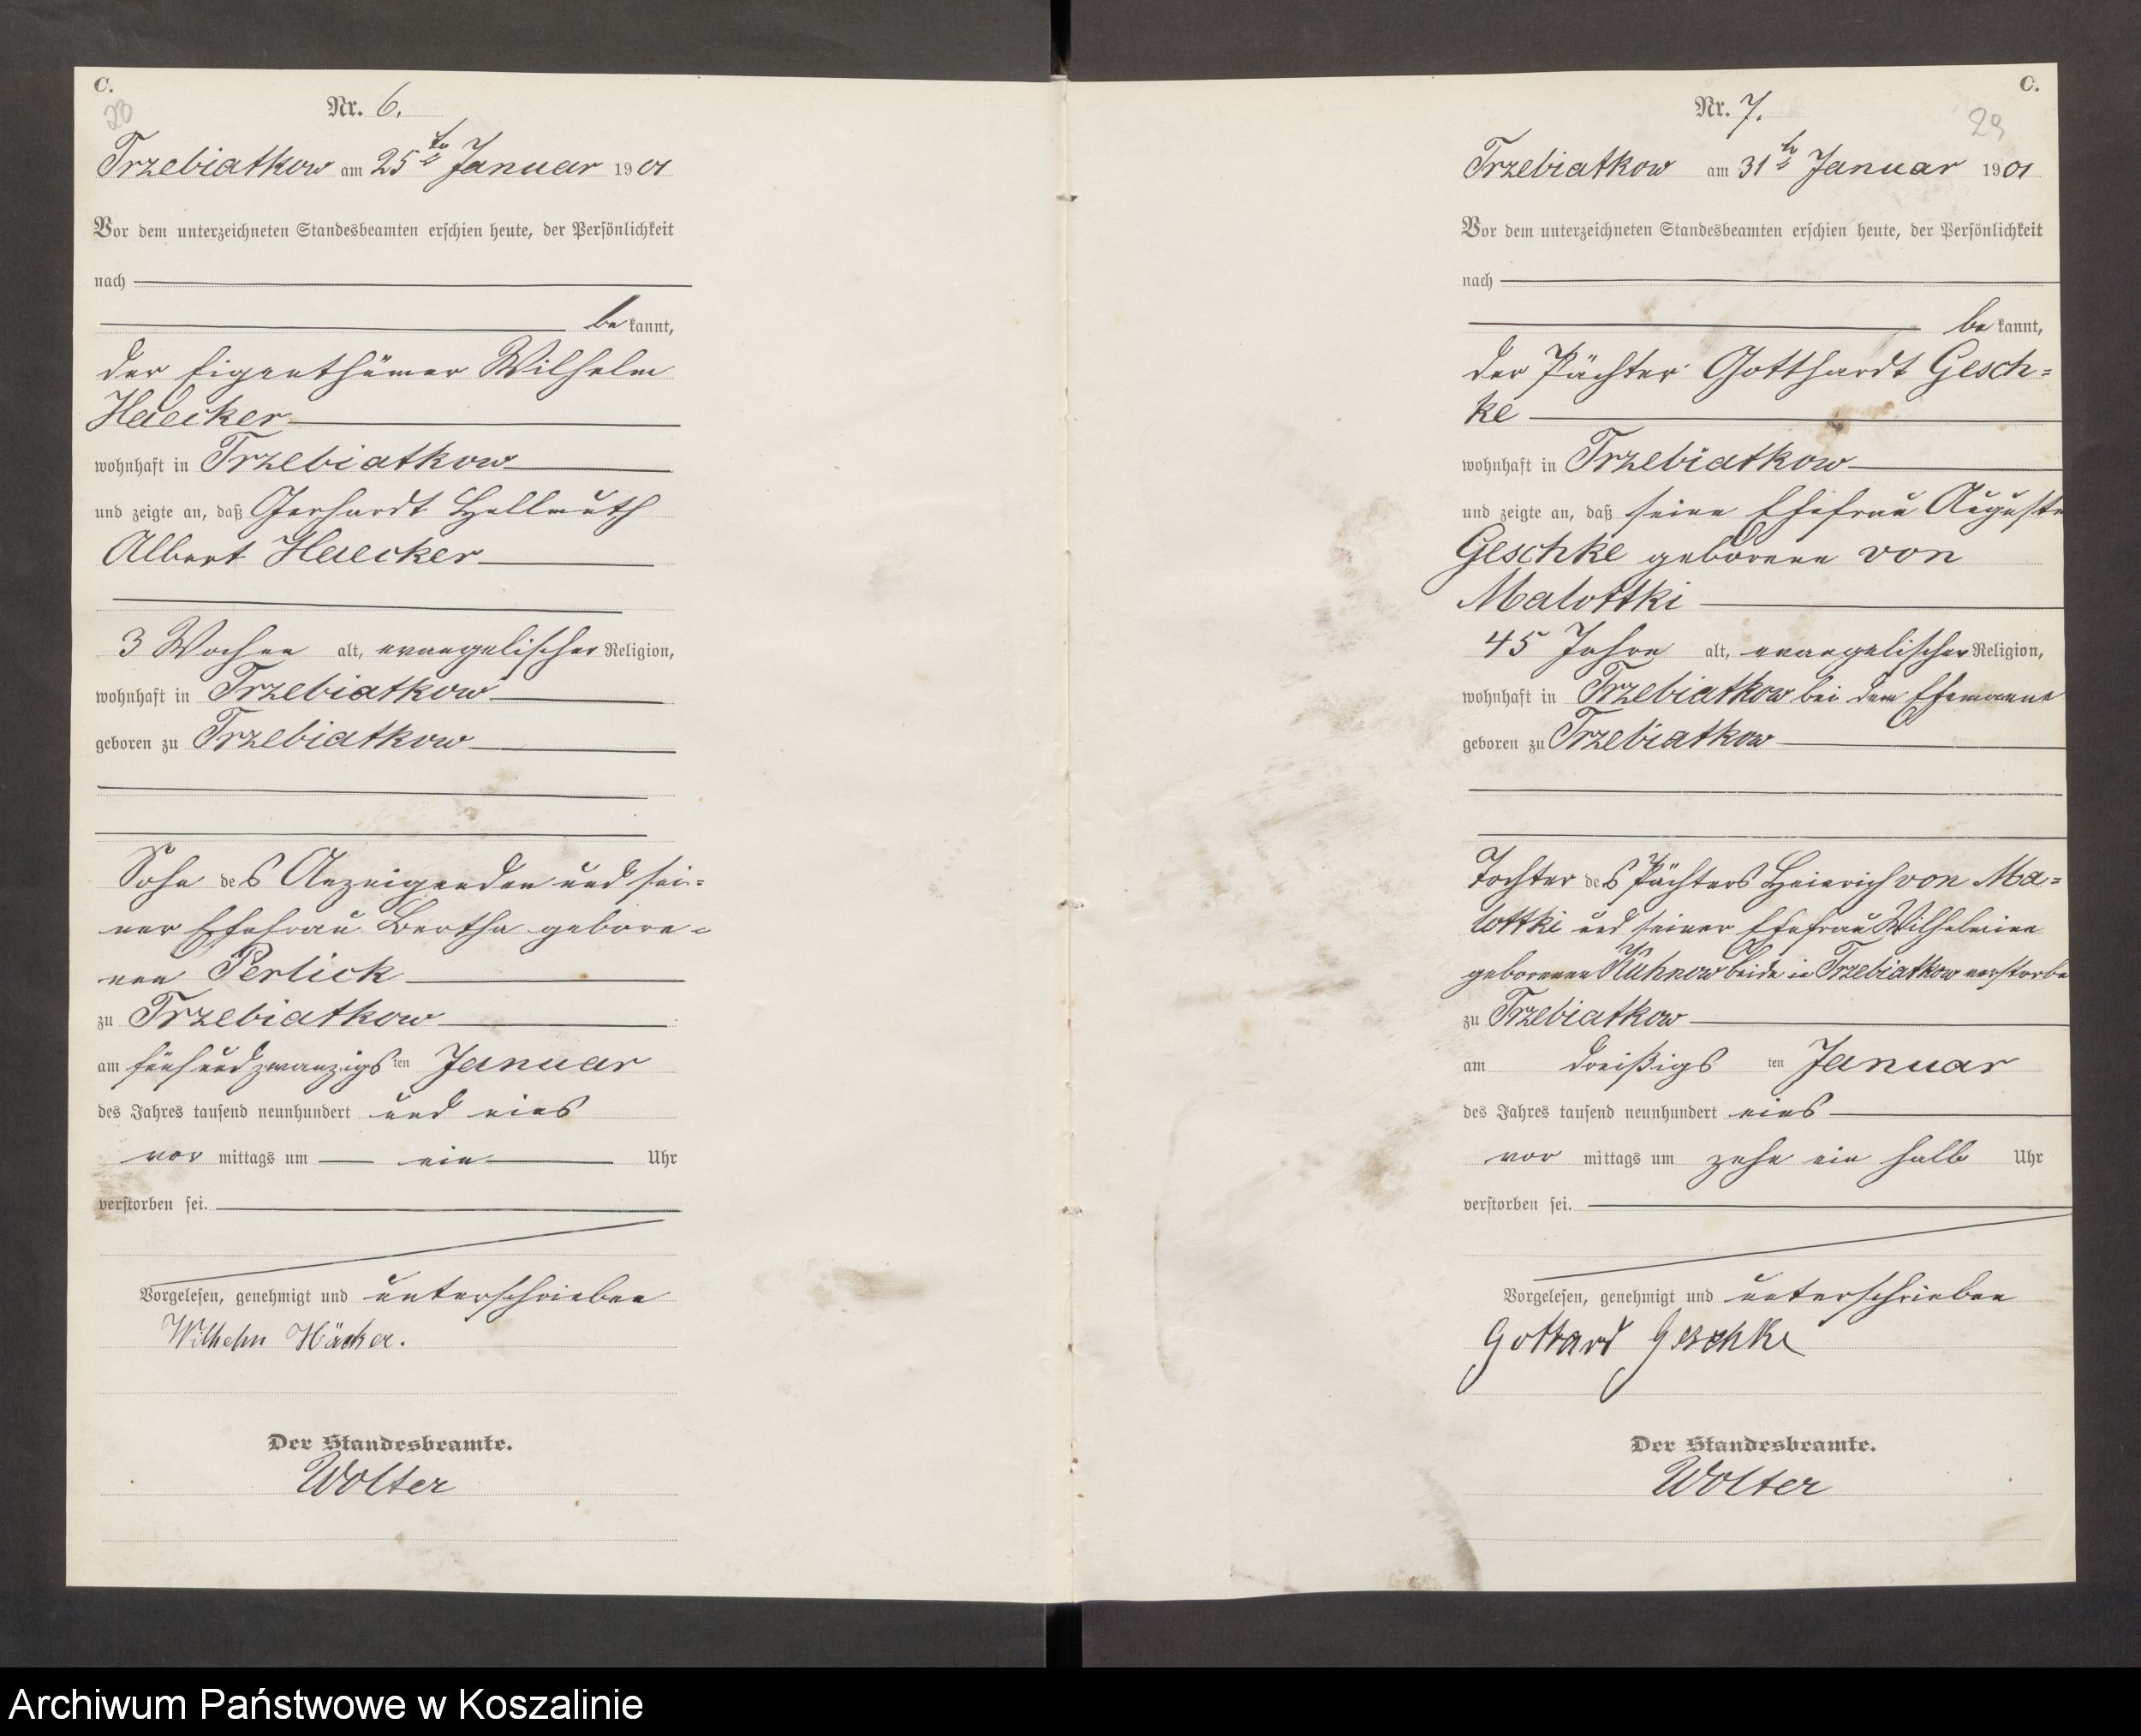 C.
28
Nr. 6.
Trzebiatkow am 25ten Januar 1901
Vor dem unterzeichneten Standesbeamten erschien heute, der Persönlichkeit
nach
bekannt,
der Eigenthümer Wilhelm
Haecker
wohnhaft in Trzebiatkow
und zeigte an, daß Gerhardt Hellmuth
Albert Haecker
3 Wochen alt, evangelischer Religion,
wohnhaft in Trzebiatkow
geboren zu Trzebiatkow
Sohn des Anzeigenden und sei=
ner Ehefrau Bertha gebore=
nen Perlick
zu Trzebiatkow
am fünfundzwanzigsten Januar
des Jahres tausend neunhundert und eins
vor mittags um ein Uhr
verstorben sei.
Vorgelesen, genehmigt und unterschrieben
Wilhelm Häcker.
Der Standesbeamte.
Wolter
C.
29
Nr. 7.
Trzebiatkow am 31ten Januar 1901
Vor dem unterzeichneten Standesbeamten erschien heute, der Persönlichkeit
nach
bekannt,
der Pächter Gotthardt Gesch=
ke
wohnhaft in Trzebiatkow
und zeigte an, daß seine Ehefrau Auguste
Geschke geborene von
Malottki
45 Jahre alt, evangelischer Religion,
wohnhaft in Trzebiatkow bei dem Ehemanne
geboren zu Trzebiatkow
Tochter des Pächters Heinrich von Ma=
lottki und seiner Ehefrau Wilhelmine
geborenen Kuhnow beide in Trzebiatkow verstorben
zu Trzebiatkow
am dreißigsten Januar
des Jahres tausend neunhundert eins
vor mittags um zehn ein halb Uhr
verstorben sei.
Vorgelesen, genehmigt und unterschrieben
Gottard Geschke
Der Standesbeamte.
Wolter
Archiwum Państwowe w Koszalinie